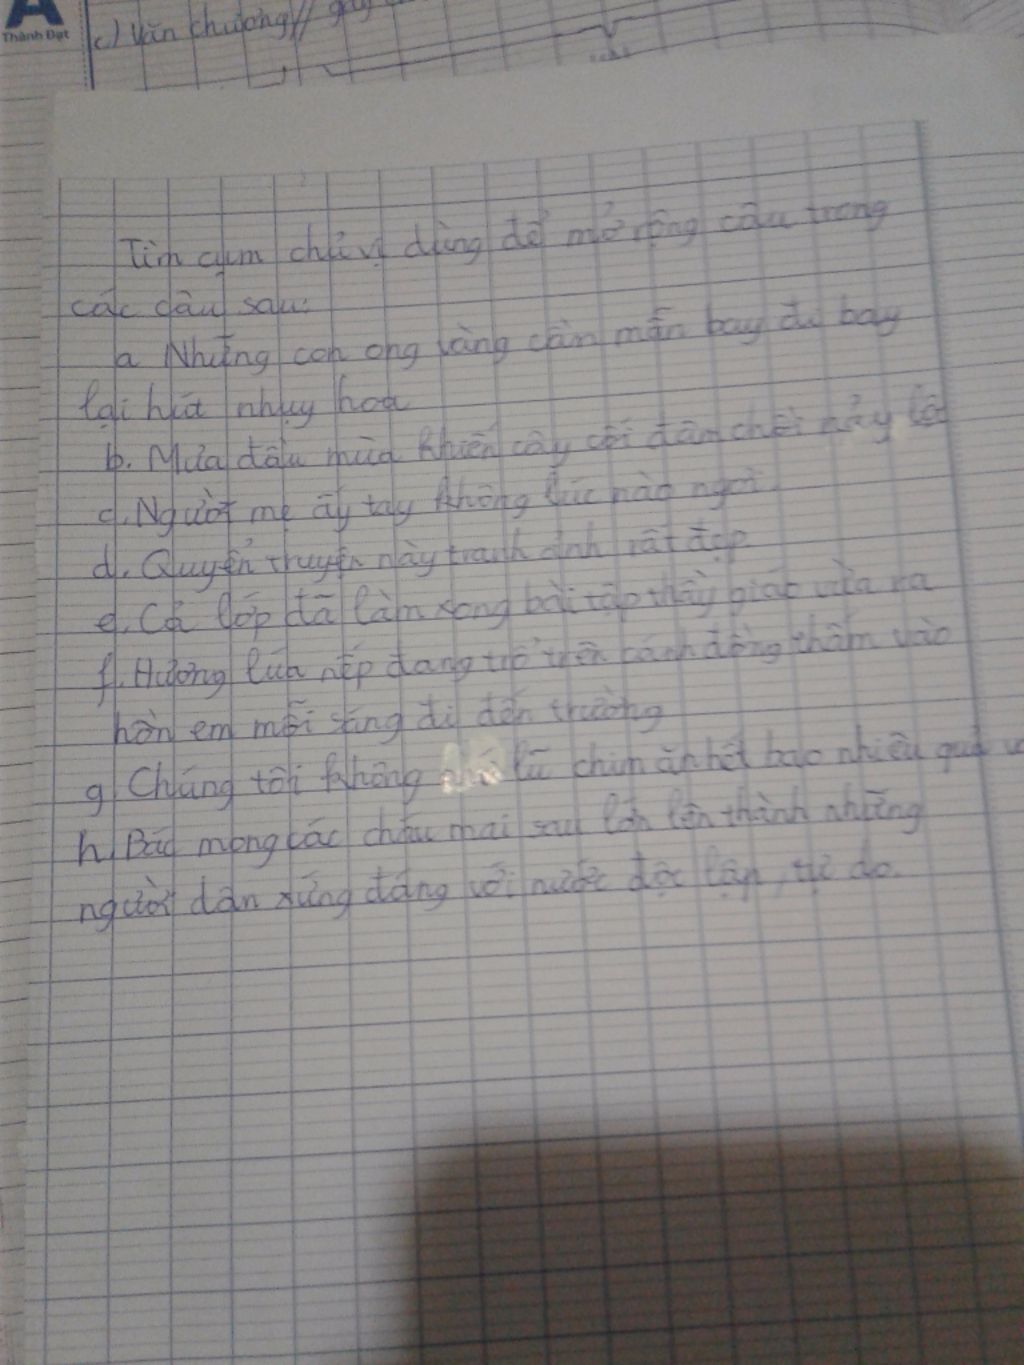 Thành Đạt
c) Văn chương // gây
Tìm cụm chủ vị dùng để mở rộng câu trong
các câu sau:
a Những con ong vàng cần mẫn bay đi bay
lại hút nhụy hoa
b. Mưa đầu mùa khiến cây cối đâm chồi nảy lộc
c. Người mẹ ấy tay không lúc nào ngơi.
d. Quyển truyện này tranh ảnh rất đẹp
e. Cả lớp đã làm xong bài tập thầy giáo vừa ra
f. Hương lúa nếp đang trổ trên cánh đồng thấm vào
hồn em mỗi sáng đi đến trường
g Chúng tôi không lũ chim ăn hết bao nhiêu quả
h Bác mong các cháu mai sau lớn lên thành những
người dân xứng đáng với nước độc lập, tự do.